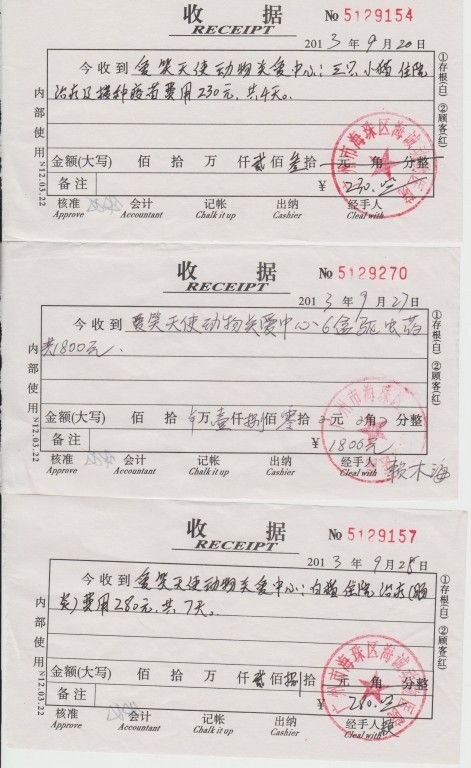 收 据 No 5129154
RECEIPT
2013年9月20日
今收到爱笑天使动物关爱中心:三只小猫住院
治疗及接种疫苗费用230元,共4天。
金额(大写) 佰 拾 万 仟贰佰叁拾 元 角 分整
备注 ¥ 230.
核准 会计 记帐 出纳 经手人
Approve Accountant Chalk it up Cashier Cleal with
内部使用 N12.03.22
①存根(白) ②顾客(红)
收 据 No 5129270
RECEIPT
2013年9月27日
今收到爱笑天使动物关爱中心、6盒驱虫药
共1800元.
金额(大写) 佰 拾 万壹仟捌佰零拾 元 角 分整
备注 ¥ 1800元
核准 会计 记帐 出纳 经手人 赖木海
Approve Accountant Chalk it up Cashier Cleal with
内部使用 N12.03.22
①存根(白) ②顾客(红)
收 据 No 5129157
RECEIPT
2013年9月25日
今收到爱笑天使动物关爱中心:白猫住院治疗(肠
炎)费用280元,共7天。
金额(大写) 佰 拾 万 仟贰佰捌拾 元 角 分整
备注 ¥ 280.
核准 会计 记帐 出纳 经手人
Approve Accountant Chalk it up Cashier Cleal with
内部使用 N12.03.22
①存根(白) ②顾客(红)
广州市海珠区海诚